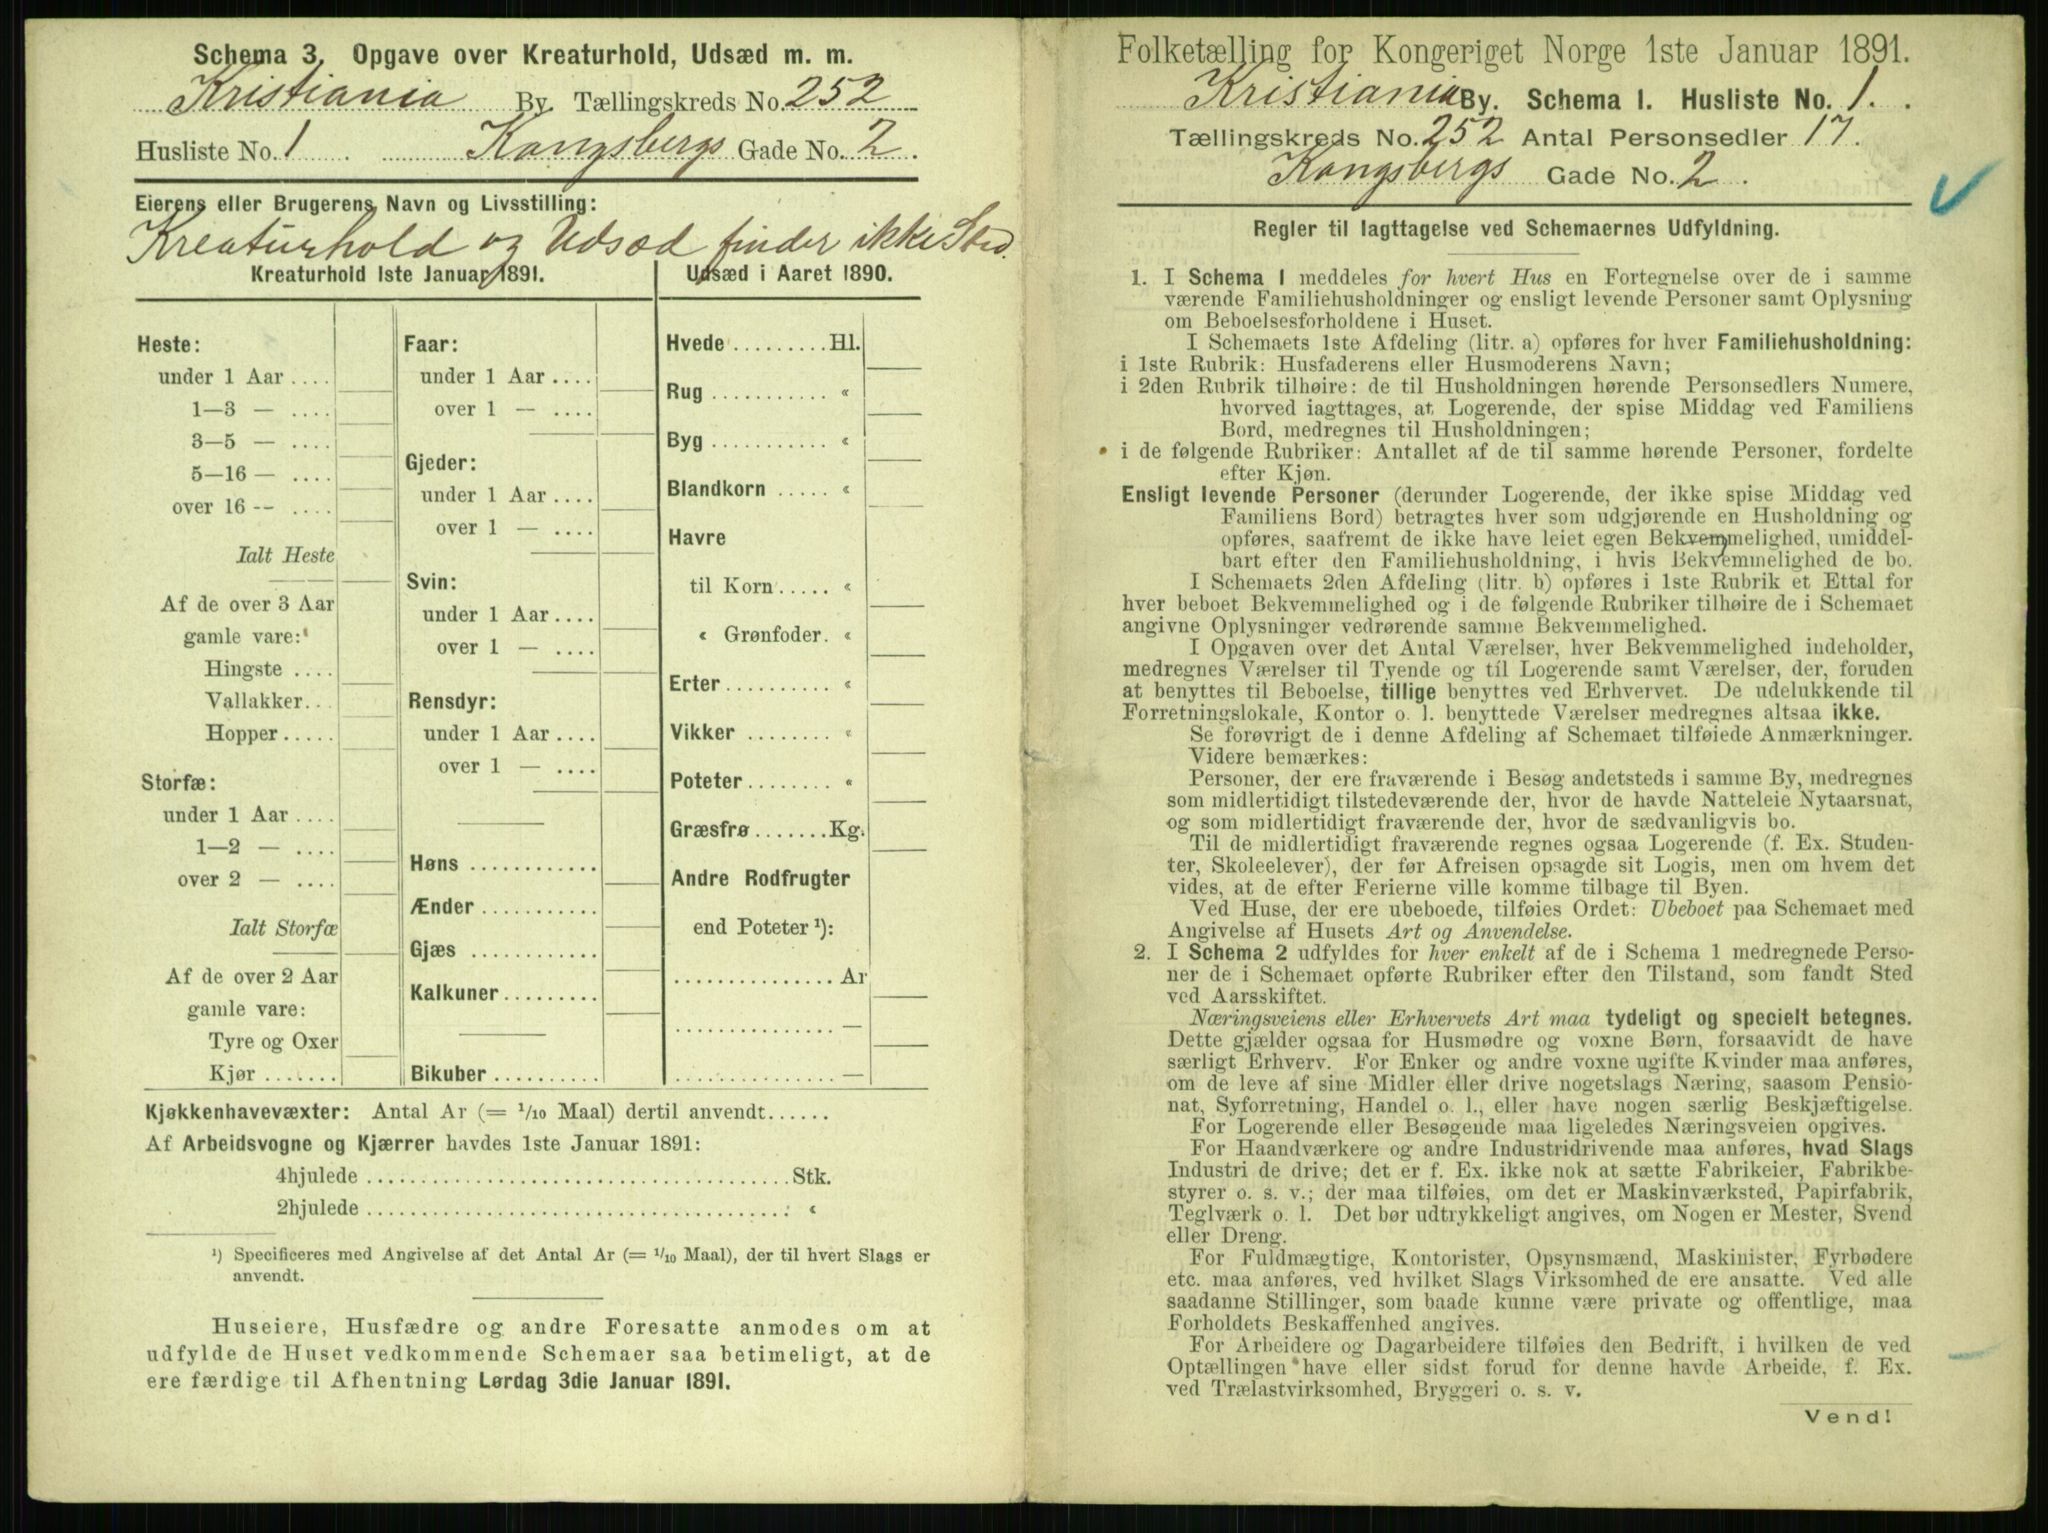 Schema 3. Opgave over Kreaturhold, Udsæd m. m.
Kristiania By. Tællingskreds No. 252
Husliste No. 1 . Kongsbergs Gade No. 2 .
Eierens eller Brugerens Navn og Livsstilling:
Kreaturhold og Udsæd finder ikke Sted.
Kreaturhold 1ste Januar 1891.
Heste:
under 1 Aar ....
1—3 — ....
3—5 — ....
5—16 — ....
over 16 -- ....
Ialt Heste
Af de over 3 Aar
gamle vare:
Hingste ....
Vallakker...
Hopper.....
Storfæ:
under 1 Aar ....
1—2 — ....
over 2 — ....
Ialt Storfæ
Af de over 2 Aar
gamle vare:
Tyre og Oxer
Kjør .......
Faar:
under 1 Aar ....
over 1 — ....
Gjeder:
under 1 Aar ....
over 1 — ....
Svin:
under 1 Aar ....
over 1 — ....
Rensdyr:
under 1 Aar ....
over 1 — ....
Høns ............
Ænder ...........
Gjæs ............
Kalkuner.........
Bikuber ..........
Udsæd i Aaret 1890.
Hvede .........Hl.
Rug ........... «
Byg ........... «
Blandkorn ..... «
Havre
til Korn..... «
« Grønfoder. «
Erter.......... «
Vikker ........ «
Poteter........ «
Græsfrø .......Kg.
Andre Rodfrugter
end Poteter ¹):
...............Ar
...............—
...............—
Kjøkkenhavevæxter: Antal Ar (= 1/10 Maal) dertil anvendt......
Af Arbeidsvogne og Kjærrer havdes 1ste Januar 1891:
4hjulede .......................................Stk.
2hjulede ....................................... «
¹) Specificeres med Angivelse af det Antal Ar (= 1/10 Maal), der til hvert Slags er
anvendt.
Huseiere, Husfædre og andre Foresatte anmodes om at
udfylde de Huset vedkommende Schemaer saa betimeligt, at de
ere færdige til Afhentning Lørdag 3die Januar 1891.
Folketælling for Kongeriget Norge 1ste Januar 1891.
Kristiania By. Schema 1. Husliste No. 1. .
Tællingskreds No. 252 Antal Personsedler 17.
Kongsbergs Gade No. 2 .
Regler til Iagttagelse ved Schemaernes Udfyldning.
1. I Schema 1 meddeles for hvert Hus en Fortegnelse over de i samme
værende Familiehusholdninger og ensligt levende Personer samt Oplysning
om Beboelsesforholdene i Huset.
I Schemaets 1ste Afdeling (litr. a) opføres for hver Familiehusholdning:
i 1ste Rubrik: Husfaderens eller Husmoderens Navn;
i 2den Rubrik tilhøire: de til Husholdningen hørende Personsedlers Numere,
hvorved iagttages, at Logerende, der spise Middag ved Familiens
Bord, medregnes til Husholdningen;
i de følgende Rubriker: Antallet af de til samme hørende Personer, fordelte
efter Kjøn.
Ensligt levende Personer (derunder Logerende, der ikke spise Middag ved
Familiens Bord) betragtes hver som udgjørende en Husholdning og
opføres, saafremt de ikke have leiet egen Bekvemmelighed, umiddel-
bart efter den Familiehusholdning, i hvis Bekvemmelighed de bo.
I Schemaets 2den Afdeling (litr. b) opføres i 1ste Rubrik et Ettal for
hver beboet Bekvemmelighed og i de følgende Rubriker tilhøire de i Schemaet
angivne Oplysninger vedrørende samme Bekvemmelighed.
I Opgaven over det Antal Værelser, hver Bekvemmelighed indeholder,
medregnes Værelser til Tyende og til Logerende samt Værelser, der, foruden
at benyttes til Beboelse, tillige benyttes ved Erhvervet. De udelukkende til
Forretningslokale, Kontor o. l. benyttede Værelser medregnes altsaa ikke.
Se forøvrigt de i denne Afdeling af Schemaet tilføiede Anmærkninger.
Videre bemærkes:
Personer, der ere fraværende i Besøg andetsteds i samme By, medregnes
som midlertidigt tilstedeværende der, hvor de havde Natteleie Nytaarsnat,
og som midlertidigt fraværende der, hvor de sædvanligvis bo.
Til de midlertidigt fraværende regnes ogsaa Logerende (f. Ex. Studen-
ter, Skoleelever), der før Afreisen opsagde sit Logis, men om hvem det
vides, at de efter Ferierne ville komme tilbage til Byen.
Ved Huse, der ere ubeboede, tilføies Ordet: Ubeboet paa Schemaet med
Angivelse af Husets Art og Anvendelse.
2. I Schema 2 udfyldes for hver enkelt af de i Schema 1 medregnede Perso-
ner de i Schemaet opførte Rubriker efter den Tilstand, som fandt Sted
ved Aarsskiftet.
Næringsveiens eller Erhvervets Art maa tydeligt og specielt betegnes.
Dette gjælder ogsaa for Husmødre og voxne Børn, forsaavidt de have
særligt Erhverv. For Enker og andre voxne ugifte Kvinder maa anføres,
om de leve af sine Midler eller drive nogetslags Næring, saasom Pensio-
nat, Syforretning, Handel o. l., eller have nogen særlig Beskjæftigelse.
For Logerende eller Besøgende maa ligeledes Næringsveien opgives.
For Haandværkere og andre Industridrivende maa anføres, hvad Slags
Industri de drive; det er f. Ex. ikke nok at sætte Fabrikeier, Fabrikbe-
styrer o. s. v.; der maa tilføies, om det er Maskinværksted, Papirfabrik,
Teglværk o. l. Det bør udtrykkeligt angives, om Nogen er Mester, Svend
eller Dreng.
For Fuldmægtige, Kontorister, Opsynsmænd, Maskinister, Fyrbødere
etc. maa anføres, ved hvilket Slags Virksomhed de ere ansatte. Ved alle
saadanne Stillinger, som baade kunne være private og offentlige, maa
Forholdets Beskaffenhed angives.
For Arbeidere og Dagarbeidere tilføies den Bedrift, i hvilken de ved
Optællingen have eller sidst forud for denne havde Arbeide, f. Ex.
ved Trælastvirksomhed, Bryggeri o. s. v.
Vend!